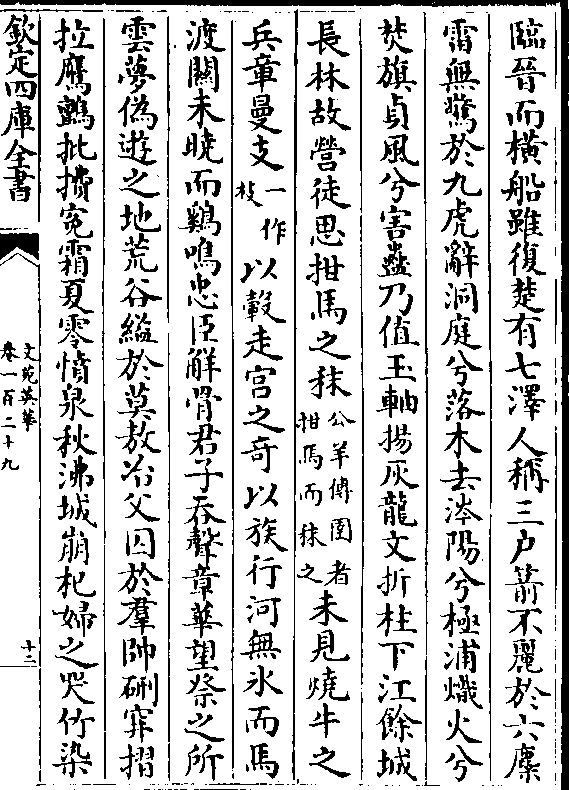 臨晉而橫船雖復楚有七澤人稱三户箭不麗於六麋
雷無驚於九虎辭洞庭兮落木去涔陽兮極浦熾火兮
焚旗貞風兮害蠱乃值玉軸揚灰龍文折柱下江餘城
長林故營徒思拑馬之秣公羊傳圍者拑馬而秣之未見燒牛之
兵章曼支一作枝以轂走宫之奇以族行河無氷而馬
渡關未曉而鷄鳴忠臣解骨君子吞聲章華望祭之所
雲夢偽遊之地荒谷縊於莫敖冶父囚於羣帥硎穽摺
拉鷹鸇批㩌寃霜夏零憤泉秋沸城崩杞婦之哭竹染
欽定四庫全書
文苑英華
卷一百二十九
十二